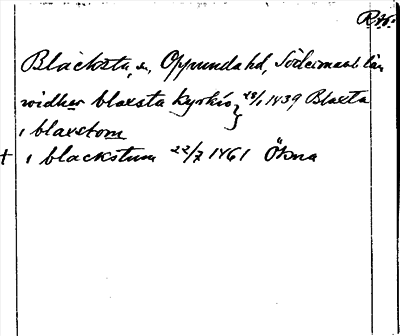 Blacksta, sn, Oppunda hd, Södermanl. län
widher blaxsta kyrkio } 28/1 1439 Blaxta
i blaxstom
+ i blackstum 22/7 1461 Ökna